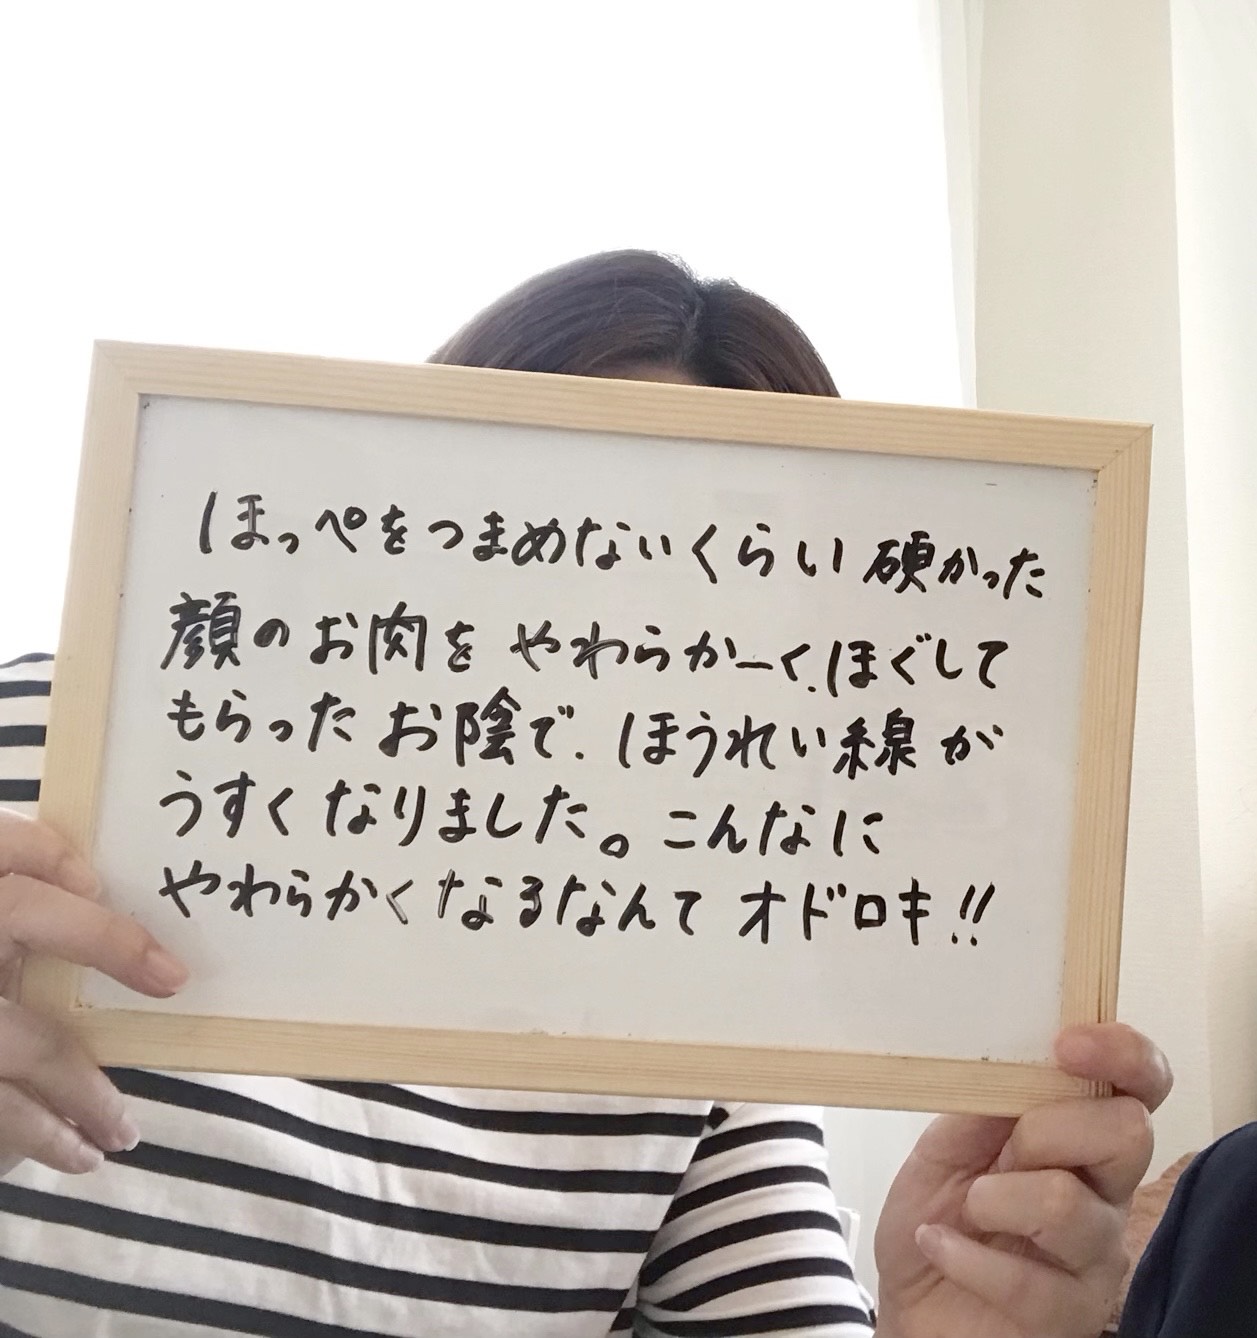 ほっぺをつまめないくらい硬かった
顔のお肉をやわらかーく、ほぐして
もらったお陰で、ほうれい線が
うすくなりました。こんなに
やわらかくなるなんてオドロキ!!